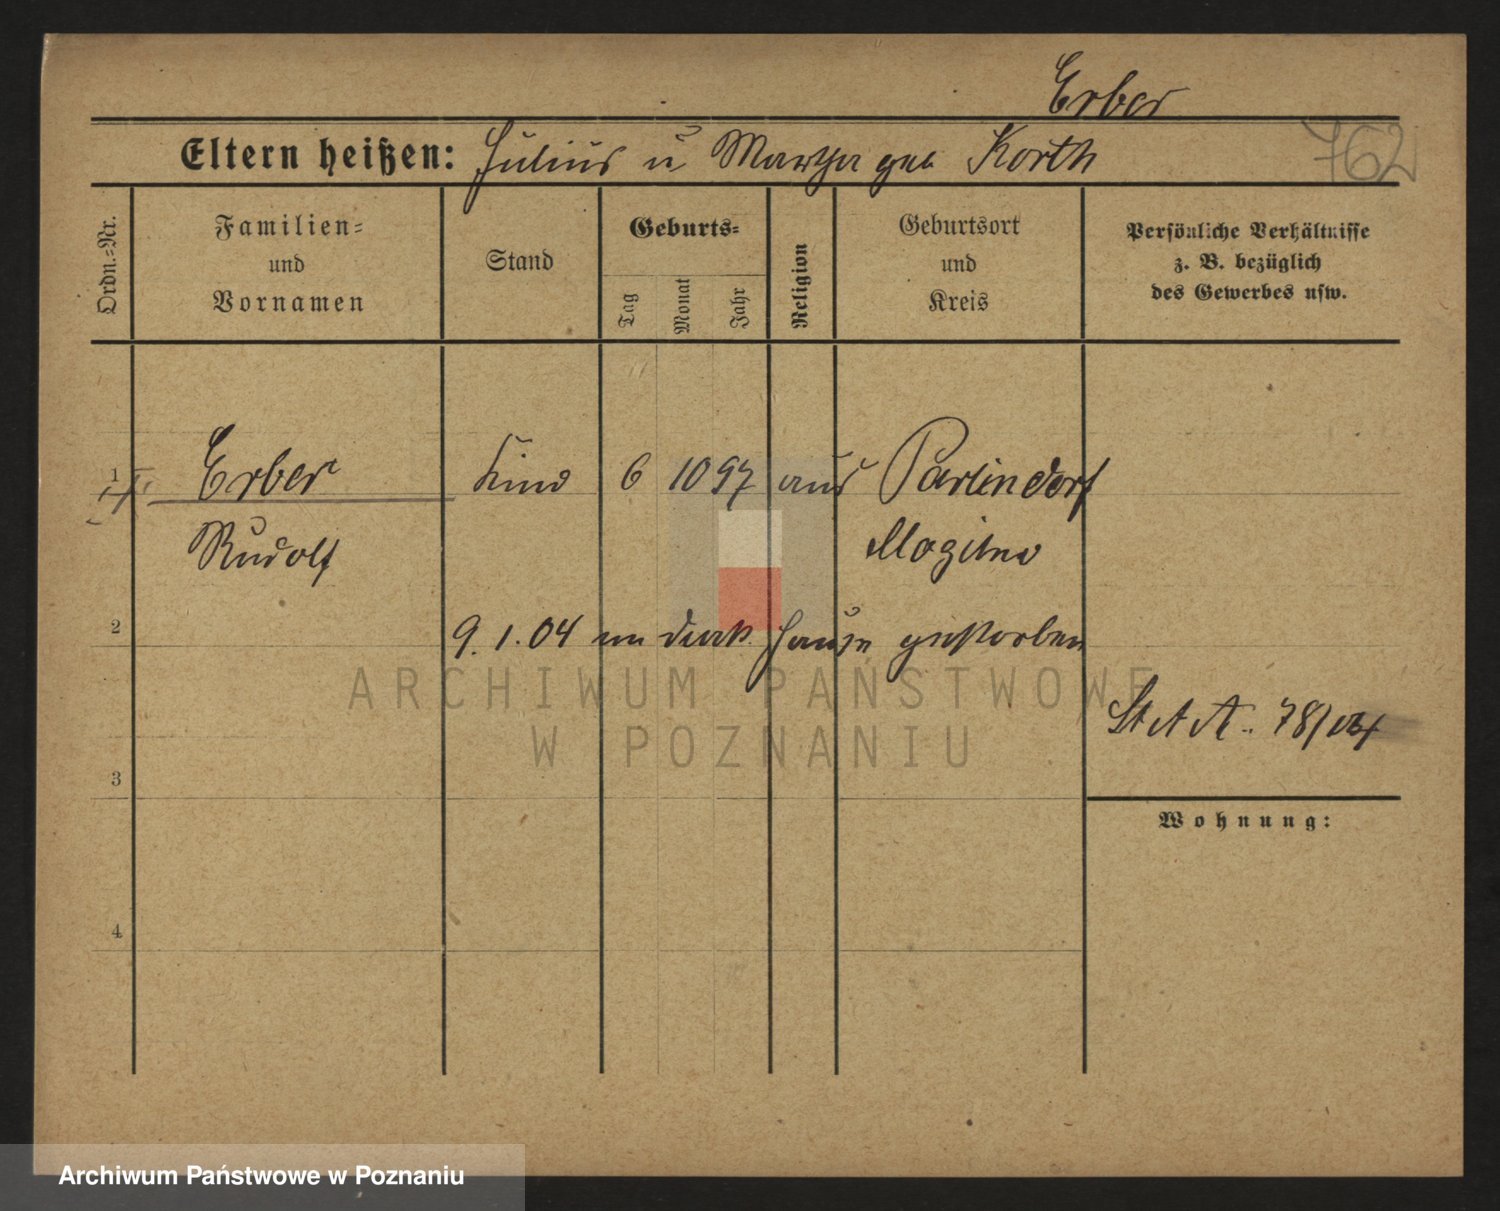 Erber
Eltern heißen: Julius u Martha geb Korth
762
Ordn.-Nr.
Familien-
und
Vornamen
Stand
Geburts-
Tag
Monat
Jahr
Religion
Geburtsort
und
Kreis
Persönliche Verhältnisse
z. B. bezüglich
des Gewerbes usw.
1 Erber Kind 6 10 97 Parlindorf
Rudolf Mogilno
2 9. 1. 04 im Hause gestorben
St A A. 78/04
3
Wohnung:
4
ARCHIWUM PAŃSTWOWE
W POZNANIU
Archiwum Państwowe w Poznaniu